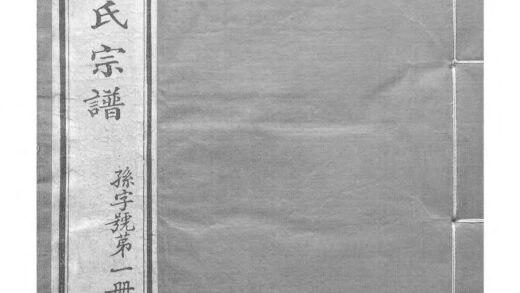 氏宗譜
孫字號第一冊